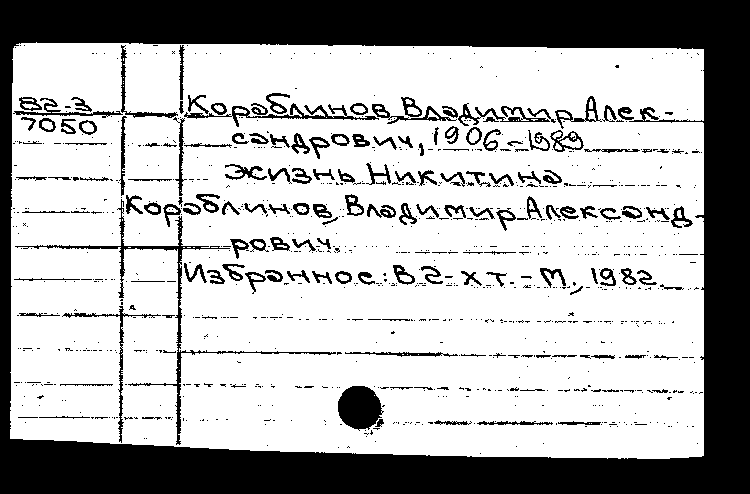 82-3
7050
Кораблинов, Владимир Алек-
сандрович, 1906-1989
Жизнь Никитина
Кораблинов, Владимир Александ-
рович.
Избранное: В 2-х т. - М., 1982.